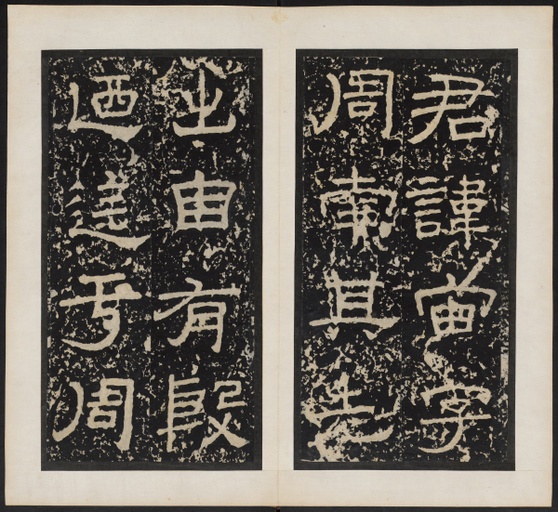 君諱宙字
周南其先
出由有殷
迺于周